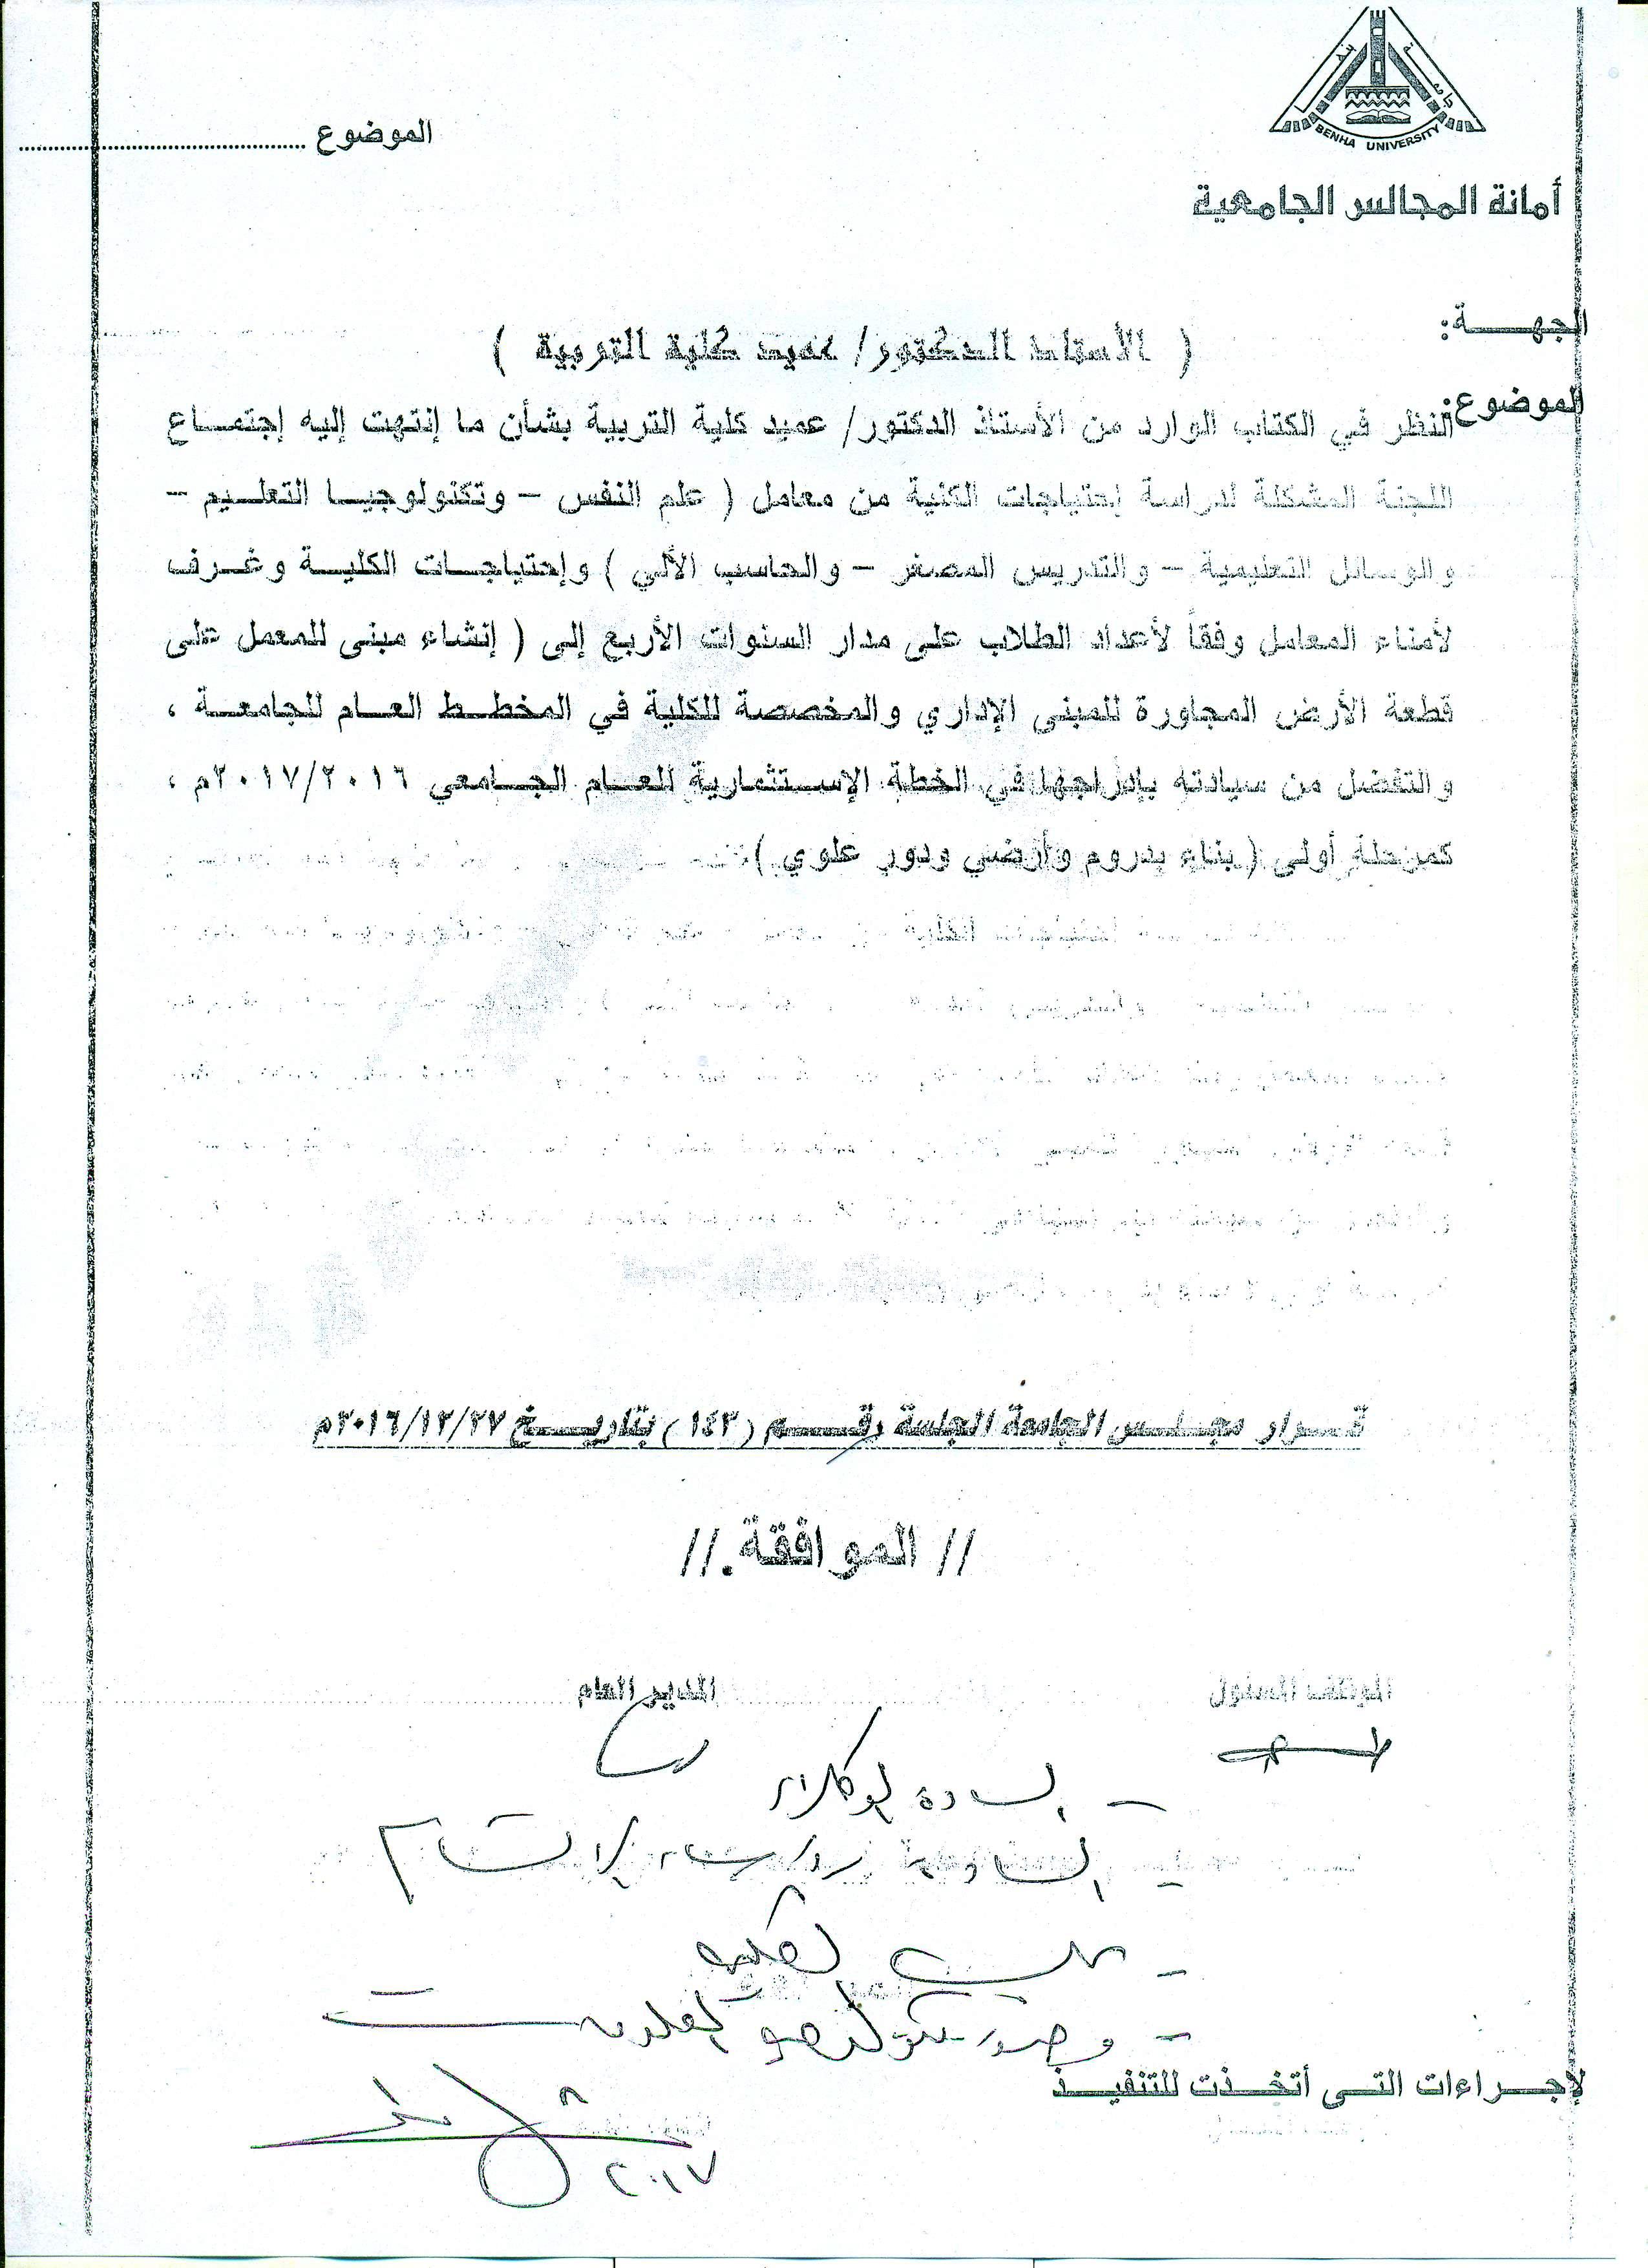 BENHA UNIVERSITY
الموضوع
أمانة المجالس الجامعية
الجهــــة:
( الأستاذ الدكتور/ عميد كلية التربية )
الموضوع:
النظر في الكتاب الوارد من الأستاذ الدكتور/ عميد كلية التربية بشأن ما إنتهت إليه إجتمـــاع
اللجنة المشكلة لدراسة إحتياجات الكلية من معامل ( علم النفس – وتكنولوجيــا التعلــيم –
والوسائل التعليمية – والتدريس المصغر – والحاسب الألي ) وإحتياجــات الكليــة وغــرف
لأمناء المعامل وفقاً لأعداد الطلاب على مدار السنوات الأربع إلى ( إنشاء مبنى للمعمل على
قطعة الأرض المجاورة للمبنى الإداري والمخصصة للكلية في المخطــط العــام للجامعــة ،
والتفضل من سيادته بإدراجها في الخطة الإســتثمارية للعــام الجــامعي ٢٠١٧/٢٠١٦م ،
كمرحلة أولى ( بناء بدروم وأرضي ودور علوي )
قــرار مجــلــس الجامعة الجلسة رقــــم (١٤٢) بتاريـــخ ٢٠١٦/١٢/٢٧م
// الموافقة .//
الموظف المسئول
المدير العام
– السادة الوكلاء
– السادة رؤساء الأقسام
–
–
لإجــراءات التــى أتخــذت للتنفيــذ
٢٠١٧